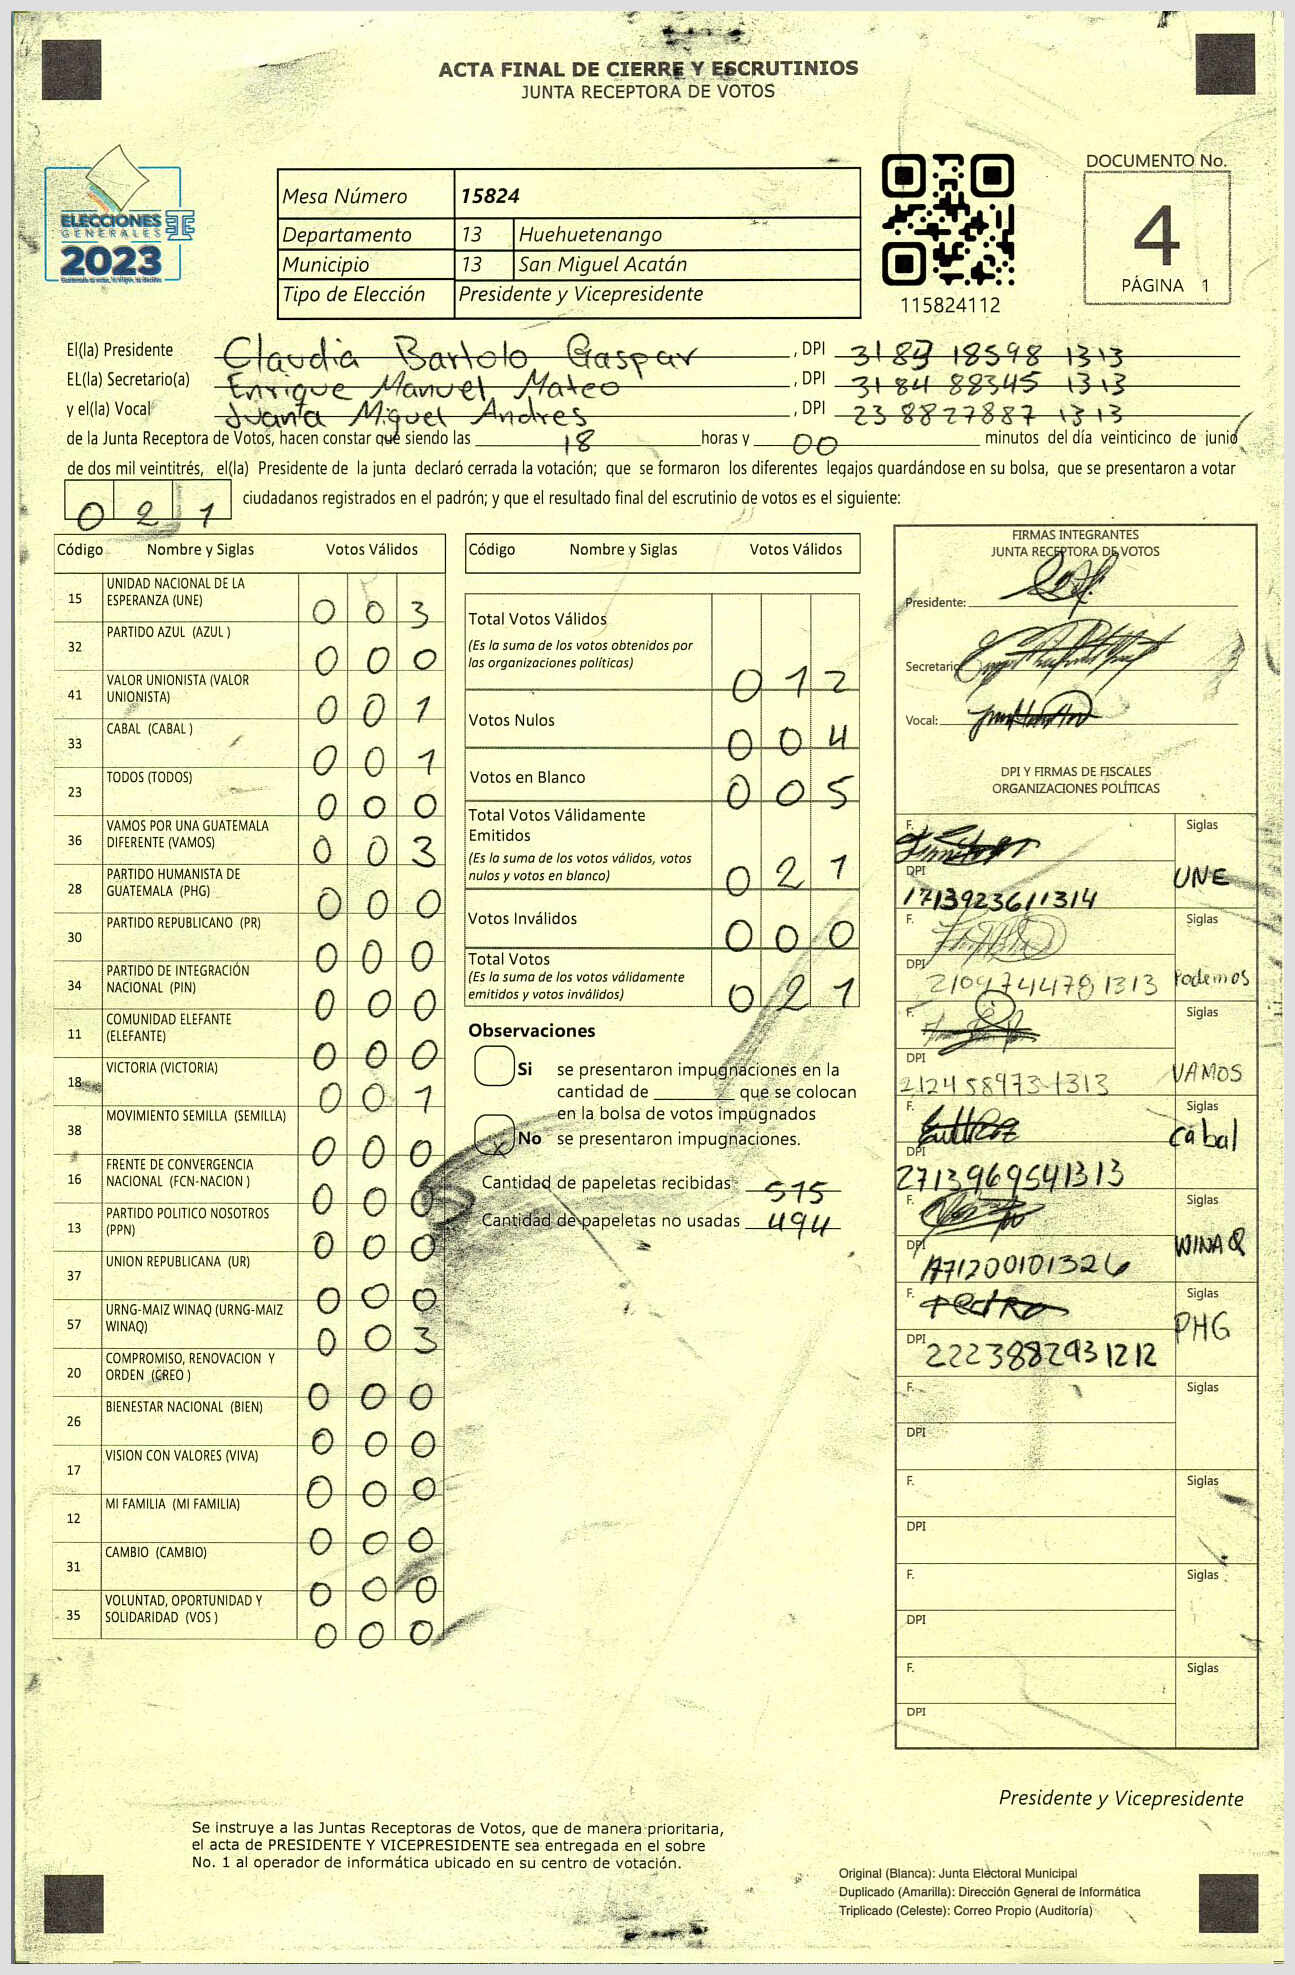 ACTA FINAL DE CIERRE Y ESCRUTINIOS
JUNTA RECEPTORA DE VOTOS
ELECCIONES
GENERALES
2023
Mesa Número 15824
Departamento 13 Huehuetenango
Municipio 13 San Miguel Acatán
Tipo de Elección Presidente y Vicepresidente
115824112
DOCUMENTO No.
4
PÁGINA 1
El(la) Presidente Claudia Bartolo Gaspar , DPI 3183 18598 1313
EL(la) Secretario(a) Enrique Manuel Mateo , DPI 3184 88345 1313
y el(la) Vocal Juana Miguel Andres , DPI 23 8827887 1313
de la Junta Receptora de Votos, hacen constar que siendo las 18 horas y 00 minutos del día veinticinco de junio
de dos mil veintitrés, el(la) Presidente de la junta declaró cerrada la votación; que se formaron los diferentes legajos guardándose en su bolsa, que se presentaron a votar
0 2 1 ciudadanos registrados en el padrón; y que el resultado final del escrutinio de votos es el siguiente:
Código Nombre y Siglas Votos Válidos
15 UNIDAD NACIONAL DE LA ESPERANZA (UNE) 0 0 3
32 PARTIDO AZUL (AZUL ) 0 0 0
41 VALOR UNIONISTA (VALOR UNIONISTA) 0 0 1
33 CABAL (CABAL ) 0 0 1
23 TODOS (TODOS) 0 0 0
36 VAMOS POR UNA GUATEMALA DIFERENTE (VAMOS) 0 0 3
28 PARTIDO HUMANISTA DE GUATEMALA (PHG) 0 0 0
30 PARTIDO REPUBLICANO (PR) 0 0 0
34 PARTIDO DE INTEGRACIÓN NACIONAL (PIN) 0 0 0
11 COMUNIDAD ELEFANTE (ELEFANTE) 0 0 0
18 VICTORIA (VICTORIA) 0 0 1
38 MOVIMIENTO SEMILLA (SEMILLA) 0 0 0
16 FRENTE DE CONVERGENCIA NACIONAL (FCN-NACION ) 0 0 0
13 PARTIDO POLITICO NOSOTROS (PPN) 0 0 0
37 UNION REPUBLICANA (UR) 0 0 0
57 URNG-MAIZ WINAQ (URNG-MAIZ WINAQ) 0 0 3
20 COMPROMISO, RENOVACION Y ORDEN (CREO ) 0 0 0
26 BIENESTAR NACIONAL (BIEN) 0 0 0
17 VISION CON VALORES (VIVA) 0 0 0
12 MI FAMILIA (MI FAMILIA) 0 0 0
31 CAMBIO (CAMBIO) 0 0 0
35 VOLUNTAD, OPORTUNIDAD Y SOLIDARIDAD (VOS ) 0 0 0
Código Nombre y Siglas Votos Válidos
Total Votos Válidos
(Es la suma de los votos obtenidos por
las organizaciones políticas) 0 1 2
Votos Nulos 0 0 4
Votos en Blanco 0 0 5
Total Votos Válidamente
Emitidos
(Es la suma de los votos válidos, votos
nulos y votos en blanco) 0 2 1
Votos Inválidos 0 0 0
Total Votos
(Es la suma de los votos válidamente
emitidos y votos inválidos) 0 2 1
Observaciones
Si se presentaron impugnaciones en la
cantidad de ________ que se colocan
en la bolsa de votos impugnados
x No se presentaron impugnaciones.
Cantidad de papeletas recibidas 515
Cantidad de papeletas no usadas 494
FIRMAS INTEGRANTES
JUNTA RECEPTORA DE VOTOS
Presidente:
Secretario
Vocal:
DPI Y FIRMAS DE FISCALES
ORGANIZACIONES POLÍTICAS
F. Siglas
DPI UNE
1713923611314
F. Siglas
DPI 2109744781313 Podemos
F. Siglas
DPI VAMOS
2124589731313
F. Siglas
DPI Cabal
2713969541313
F. Siglas
DPI WINAQ
1771200101326
F. Pedro Siglas
PHG
DPI 2223882931212
F. Siglas
DPI
F. Siglas
DPI
F. Siglas
DPI
F. Siglas
DPI
Presidente y Vicepresidente
Se instruye a las Juntas Receptoras de Votos, que de manera prioritaria,
el acta de PRESIDENTE Y VICEPRESIDENTE sea entregada en el sobre
No. 1 al operador de informática ubicado en su centro de votación.
Original (Blanca): Junta Electoral Municipal
Duplicado (Amarilla): Dirección General de Informática
Triplicado (Celeste): Correo Propio (Auditoría)